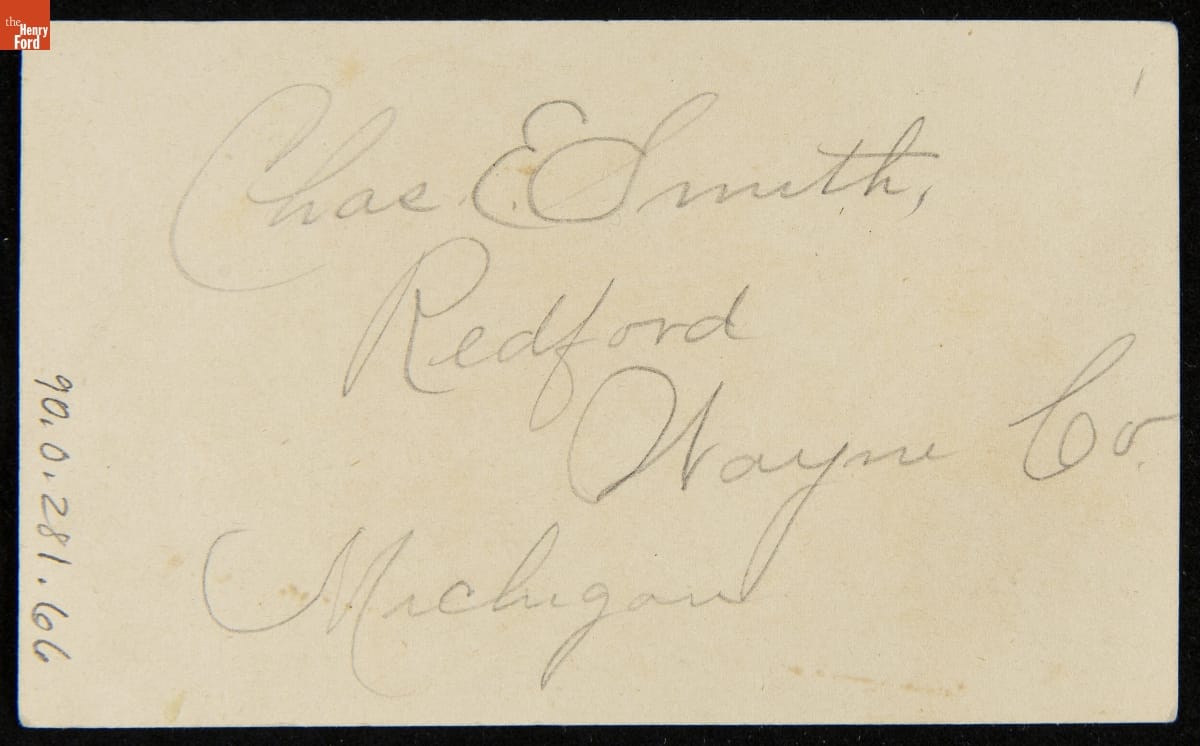 the
Henry
Ford
Chas. E. Smith,
Redford
Wayne Co.
Michigan
90.0.281.66